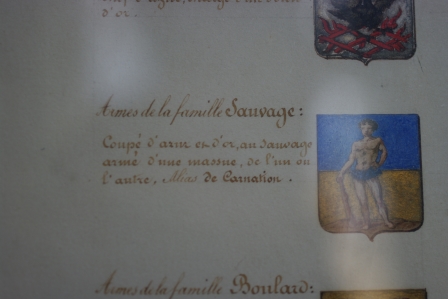 d'or.
Armes de la famille Sauvage:
Coupé d'azur et d'or, au sauvage
armé d'une massue, de l'un en
l'autre, Alias de Carnation.
Armes de la famille Boulard: